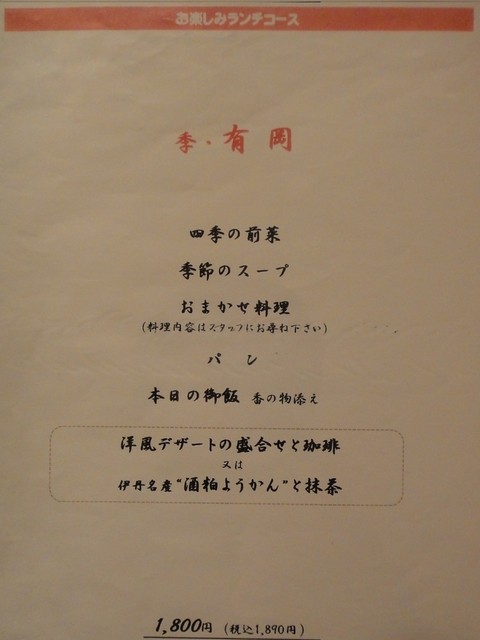 お楽しみランチコース
季・有岡
四季の前菜
季節のスープ
おまかせ料理
(料理内容はスタッフにお尋ね下さい)
パン
本日の御飯 香の物添え
洋風デザートの盛合せと珈琲
又は
伊丹名産“酒粕ようかん”と抹茶
1,800円 (税込1,890円)